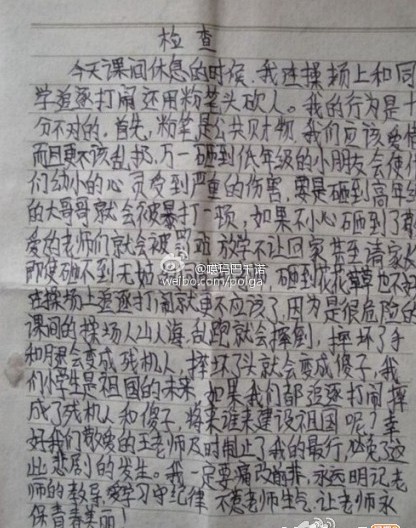 检查
今天课间休息的时候,我在操场上和同
学追逐打闹还用粉笔头砍人。我的行为是十
分不对的。首先,粉笔是公共财物,我们应该爱惜
而且更不该乱扔,万一砸到低年级的小朋友会使他
们幼小的心灵受到严重的伤害,要是砸到高年级
的大哥哥就会被暴打一顿,如果不小心砸到了敬
爱的老师们就会被罚站 放学不让回家甚至请家长
即使砸不到无姑 砸到花花草草也不
在操场上追逐打闹就更不应该了,因为是很危险的
课间的操场人山人海,乱跑就会摔倒,摔坏了手
和腿会变成残机人,摔坏了头就会变成傻子,我
们小学生是祖国的未来 如果我们都追逐打闹摔
成了残机人和傻子,将来谁来建设祖国呢?幸
好我们敬爱的王老师及时制止了我的暴行,避免了这
出悲剧的发生。我一定要痛改前非,永远明记老
师的教导 爱学习守纪律 不惹老师生气,让老师永
保青春美丽!
@喵玛巴千诺
weibo.com/polga